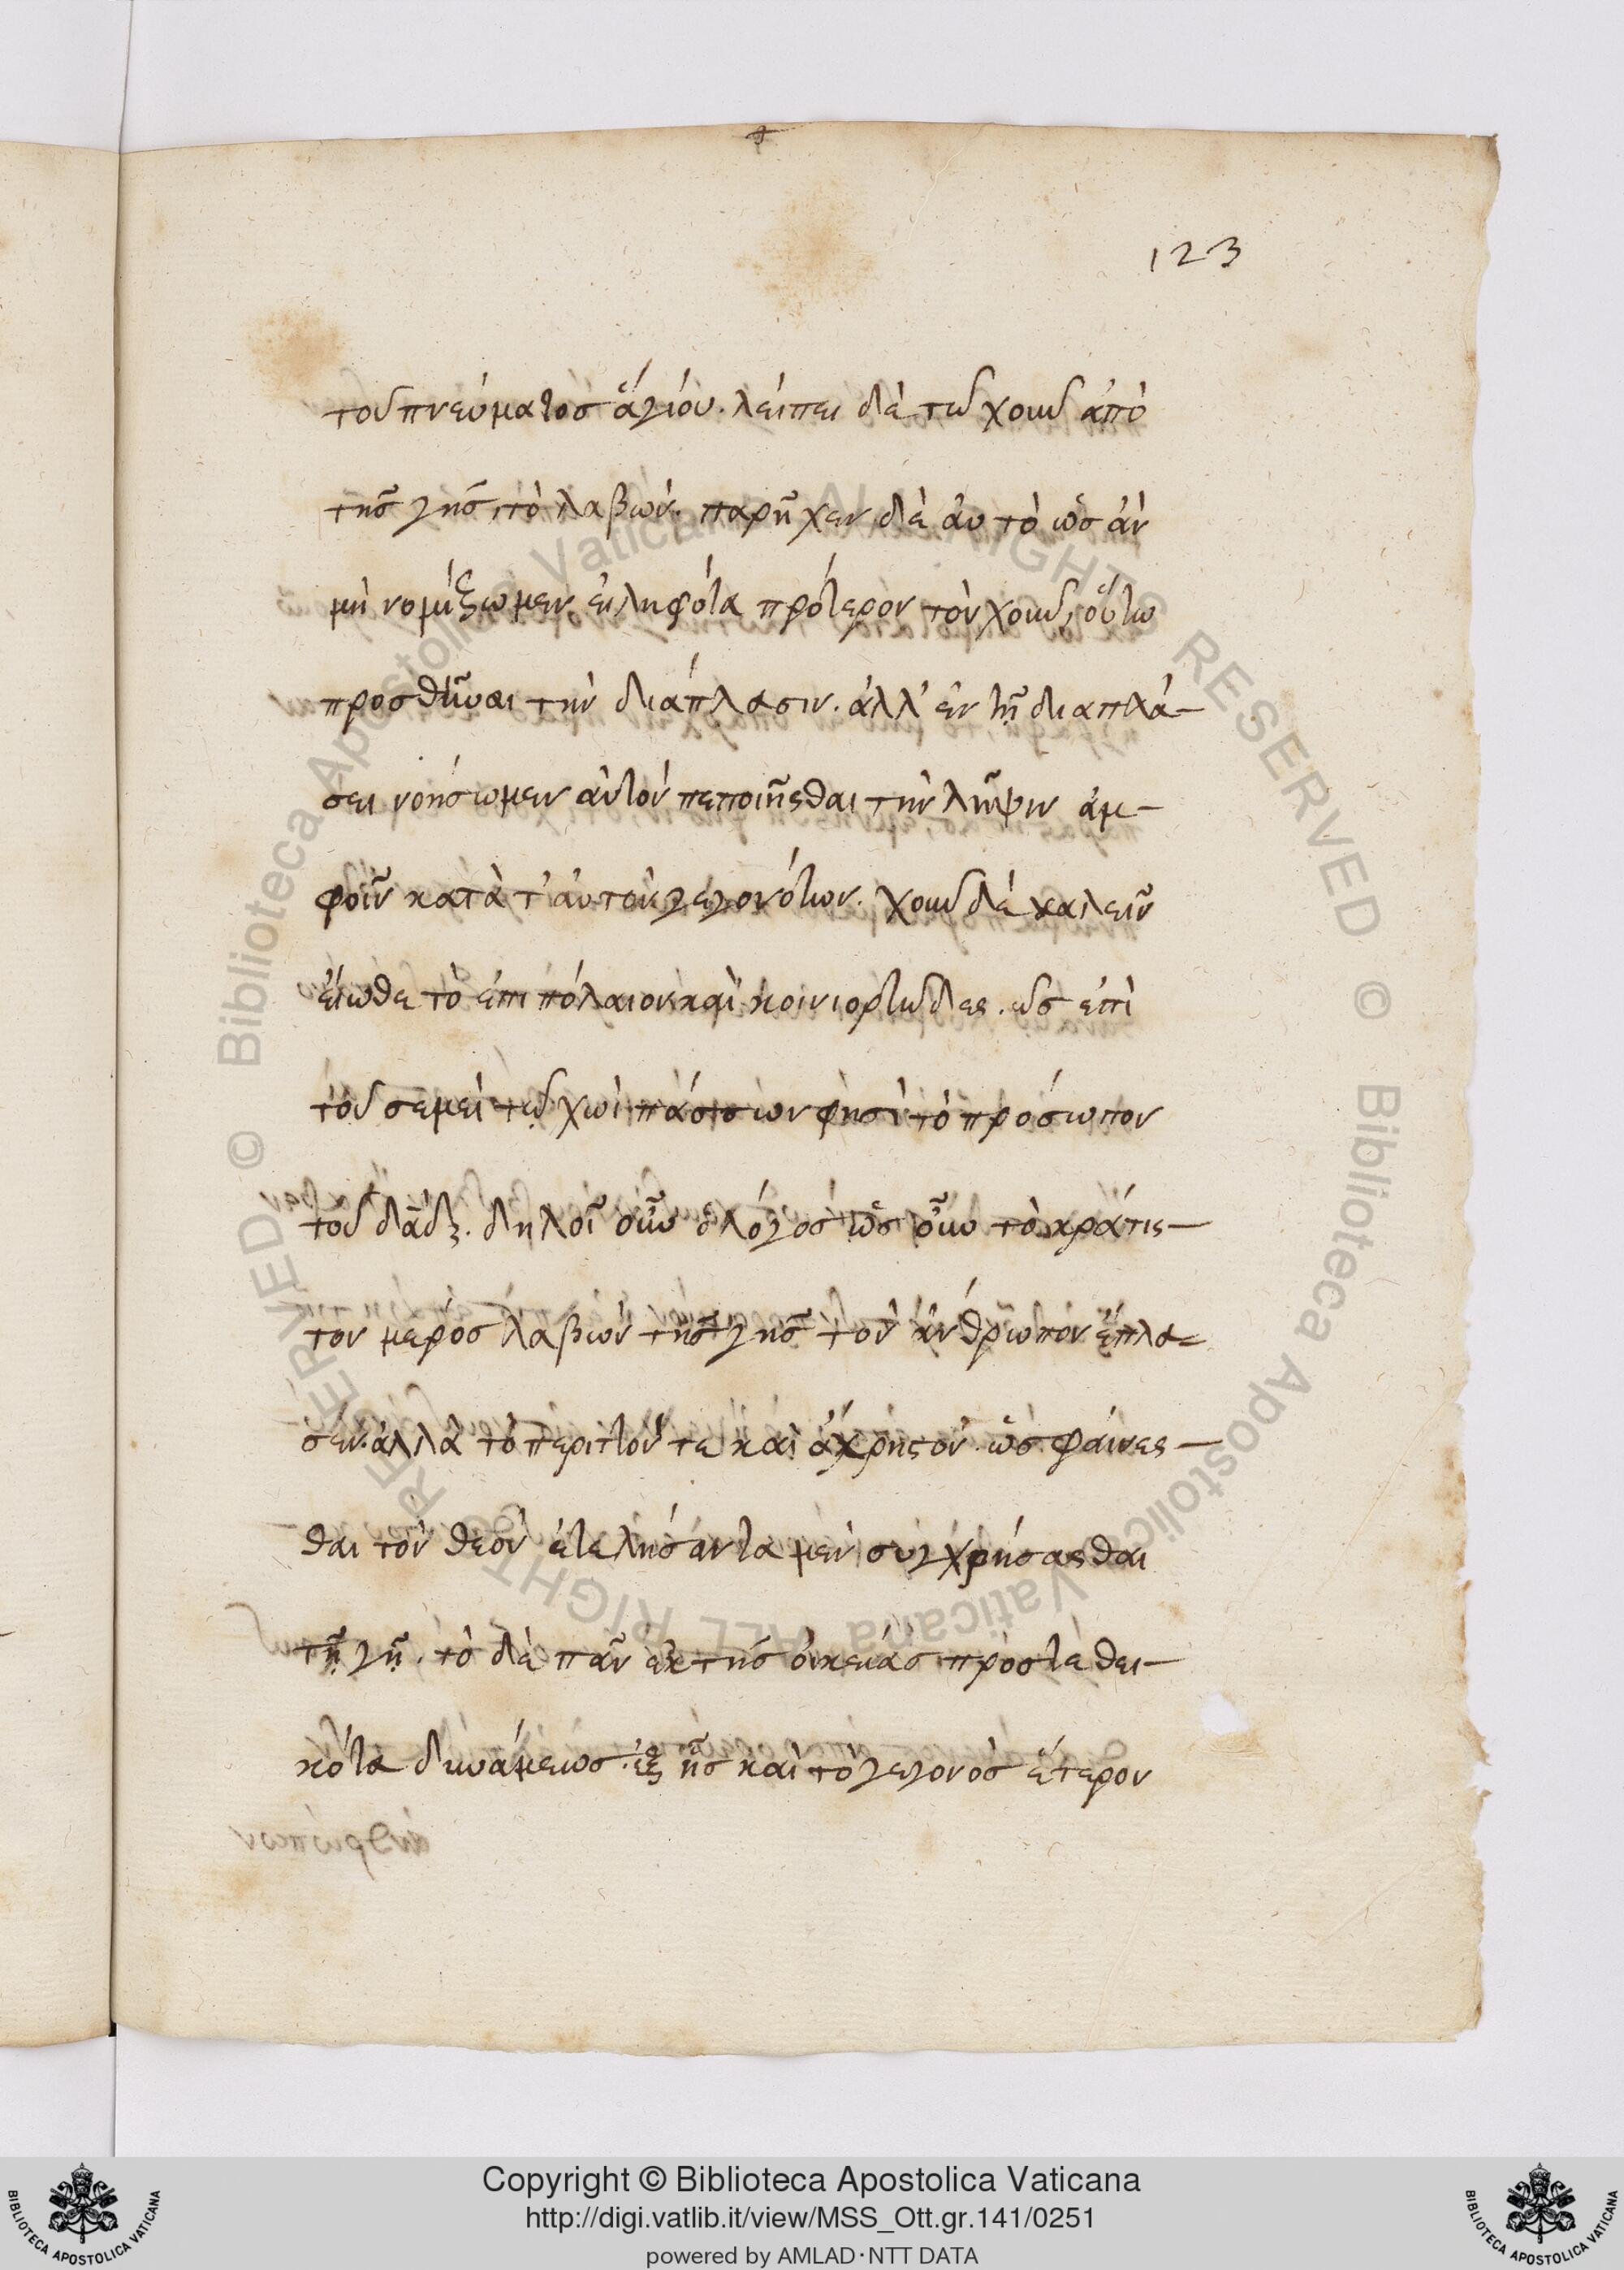 123
τοῦ πνεύματος ἁγίου. λείπει δὲ τῶ χοῦν ἀπὸ
τῆς γῆς, τὸ λαβών. παρῆχεν δὲ αὐτὸ ὡς ἂν
μὴ νομίξωμεν εἰληφότα πρότερον τὸν χοῦν, οὕτω
προσθῆναι τὴν διάπλασιν. ἀλλ' ἐν τῇ διαπλά-
σει νοήσωμεν αὐτὸν πεποιῆσθαι τὴν λῆψιν ἀμ-
φοῖν κατὰ τ' αὐτὸν γεγονότων. χοῦν δὲ καλεῖν
εἴωθε τὸ ἐπιπόλαιον καὶ κοινιορτῶδες. ὡς ἐπὶ
τοῦ σεμεὶ τῷ χωῒ πάσσων φησὶ τὸ πρόσωπον
τοῦ δᾱδ. δηλοῖ οὖν ὁ λόγος ὡς οὖν τὸ κράτισ-
τον μέρος λαβὼν τῆς γῆς τὸν ἄνθρωπον ἔπλα-
σεν. ἀλλὰ τὸ περιττόν τε καὶ ἄχρηστον. ὡς φαίνεσ-
θαι τὸν θεὸν ἐτελήσαντα μὲν συγχρήσασθαι
τῇ γῇ. τὸ δὲ πᾶν ἐκ τῆς οἰκείας προστεθει-
κότα δυνάμεως. ἐξ ἧς καὶ τὸ γεγονὸς ἕτερον
Copyright © Biblioteca Apostolica Vaticana
http://digi.vatlib.it/view/MSS_Ott.gr.141/0251
powered by AMLAD·NTT DATA
BIBLIOTECA APOSTOLICA VATICANA
BIBLIOTECA APOSTOLICA VATICANA
© Biblioteca Apostolica Vaticana ALL RIGHTS RESERVED
© Biblioteca Apostolica Vaticana ALL RIGHTS RESERVED